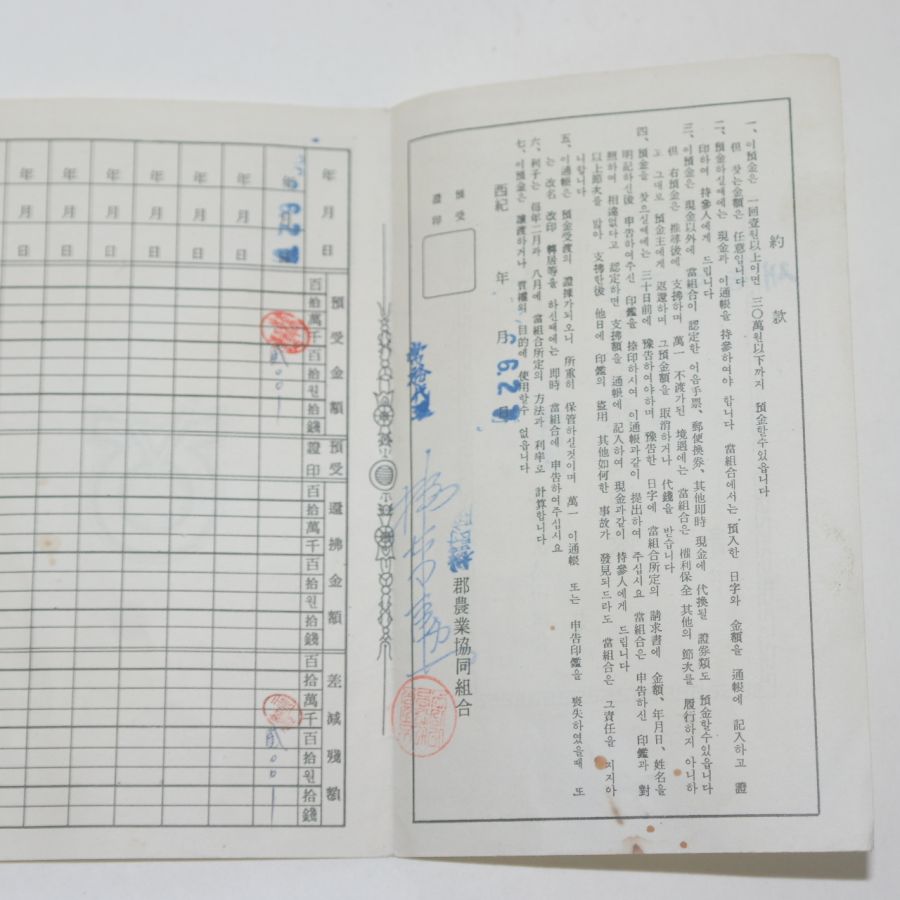 約款
一、이預金은 一回壹원以上이면 三〇萬원以下까지 預金할수있읍니다
但 찾는金額은 任意입니다
二、預金하실때에는 現金과 이通帳을 持參하여야 합니다 當組合에서는 預入한 日字와 金額을 通帳에 記入하고 證
印하여 持參人에게 드립니다
三、이預金은 現金以外에 當組合이 認定한 어음手票、郵便換券、其他即時 現金에 代換될 證券類도 預金할수있읍니다
但 右預金은 推尋後에 支拂하며 萬一 不渡가된 境遇에는 當組合은 權利保全 其他의 節次를 履行하지 아니하
고 그대로 預金主에게 返還하며 그預金額을 取消하거나 代錢을 받습니다
四、預金을 찾으실때에는 三十日前에 豫告하여야하며 豫告한 日字에 當組合所定의 請求書에 金額、年月日、姓名을
明記하신後 申告하여주신 印鑑을 捺印하시여 이通帳과같이 提出하여 주십시요 當組合은 申告하신 印鑑과 對
照하여 相違없다고 認定하면 支拂額을 通帳에 記入하여 現金과같이 持參人에게 드립니다
以上節次를 밟아 支拂한後 他日에 印鑑의 盜用 其他如何한 事故가 發見되드라도 當組合은 그責任을 지지아
니합니다
五、이通帳은 預金受渡의 證據가되오니 所重히 保管하실것이며 萬一 이通帳 또는 申告印鑑을 喪失하였을때 또
는 改名 改印 轉居等을 하신때에는 即時 當組合에 申告하여주십시요
六、利子는 每年二月과 八月에 當組合所定의 方法과 利率로 計算합니다
七、이預金은 讓渡하거나 質權의 目的에 使用할수 없읍니다
西紀 年 月 日
預受
證印
常務代理
郡農業協同組合
年月日
預受金額
百拾萬千百拾원拾錢
預受
證印
還拂金額
百拾萬千百拾원拾錢
差減殘額
百拾萬千百拾원拾錢
年月日
貳00
貳00
年月日
年月日
年月日
年月日
年月日
年月日